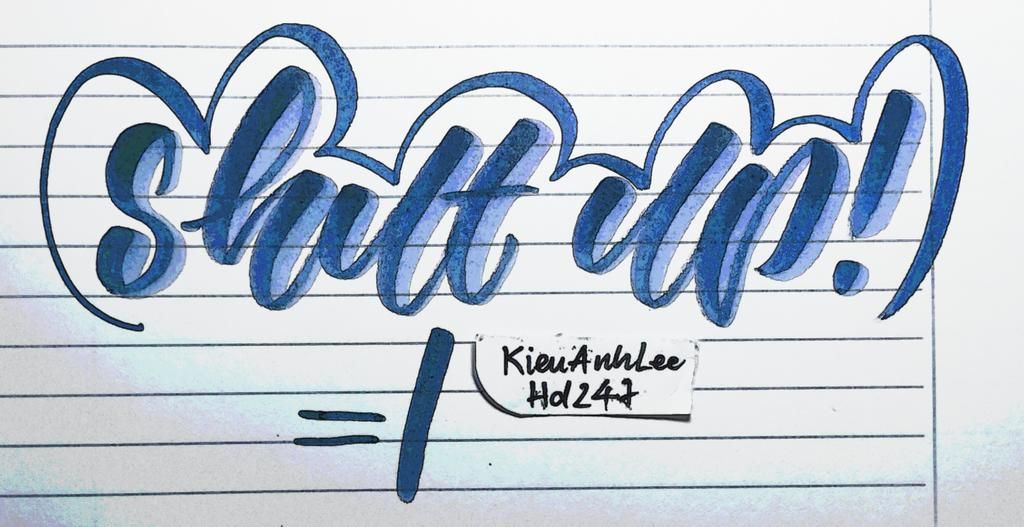 shut up!
= 1
KieuAnhLee
Hd247